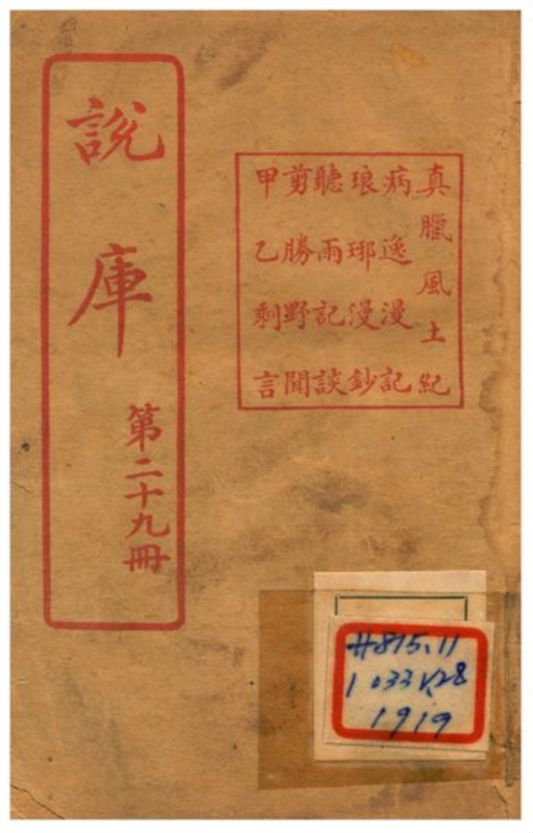 說庫
第二十九冊
真臘風土紀
病逸漫記
琅琊漫鈔
聽雨記談
剪勝野聞
甲乙剩言
#815.11
1033 V.28
1919